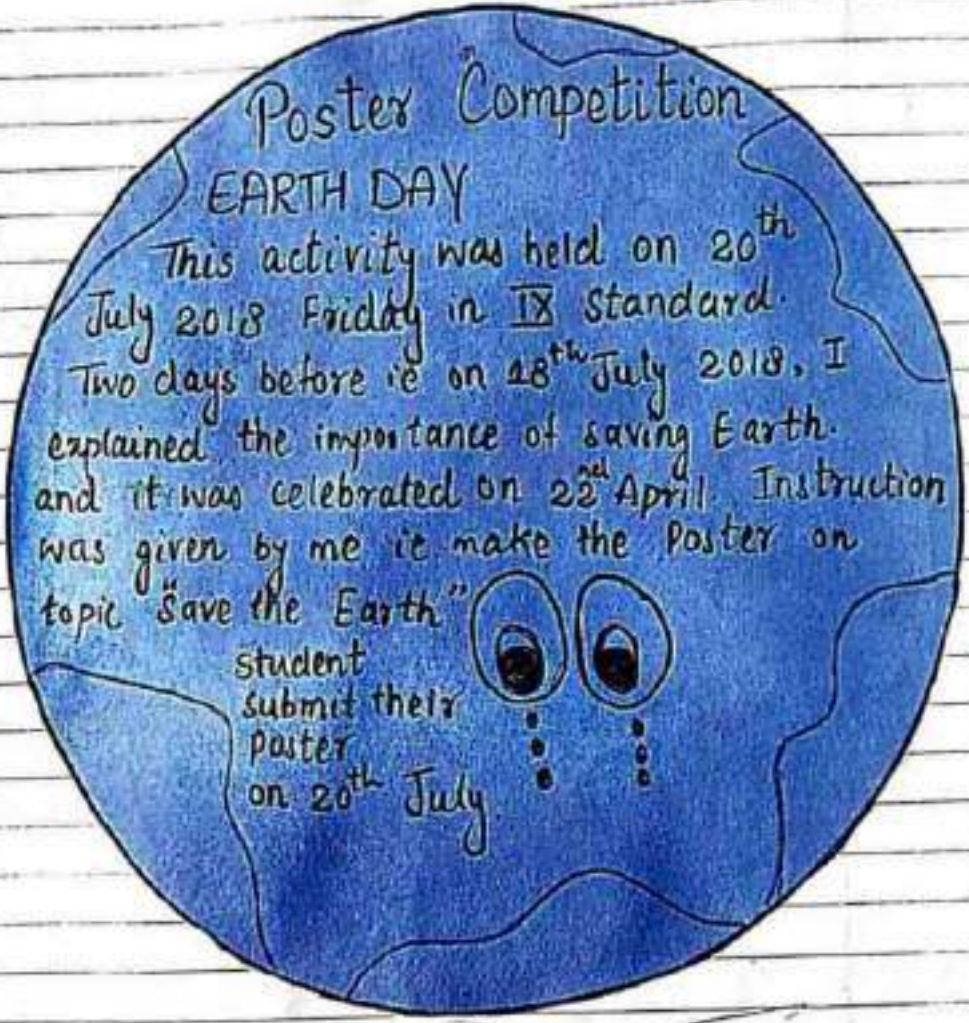 Poster "Competition
EARTH DAY
This activity was held on 20th
July 2018 Friday in IX Standard.
Two days before ie on 18th July 2018, I
explained the importance of saving Earth.
and it was celebrated on 22nd April. Instruction
was given by me ie make the Poster on
topic "Save the Earth"
student
submit their
poster
on 20th July